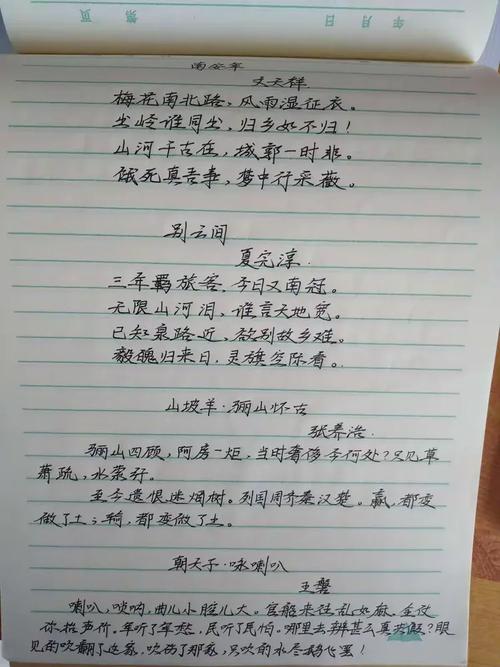 年 月 日
第 页
南安军
文天祥
梅花南北路，风雨湿征衣。
出岭谁同出，归乡如不归！
山河千古在，城郭一时非。
饿死真吾事，梦中行采薇。
别云间
夏完淳
三年羁旅客，今日又南冠。
无限山河泪，谁言天地宽。
已知泉路近，欲别故乡难。
毅魄归来日，灵旗空际看。
山坡羊·骊山怀古
张养浩
骊山四顾，阿房一炬，当时奢侈今何处？只见草
萧疏，水萦纡。
至今遗恨迷烟树。列国周齐秦汉楚。赢，都变
做了土；输，都变做了土。
朝天子·咏喇叭
王磐
喇叭，唢呐，曲儿小腔儿大。官船来往乱如麻，全仗
你抬声价。军听了军愁，民听了民怕。哪里去辨甚么真共假？眼
见的吹翻了这家，吹伤了那家，只吹的水尽鹅飞罢！